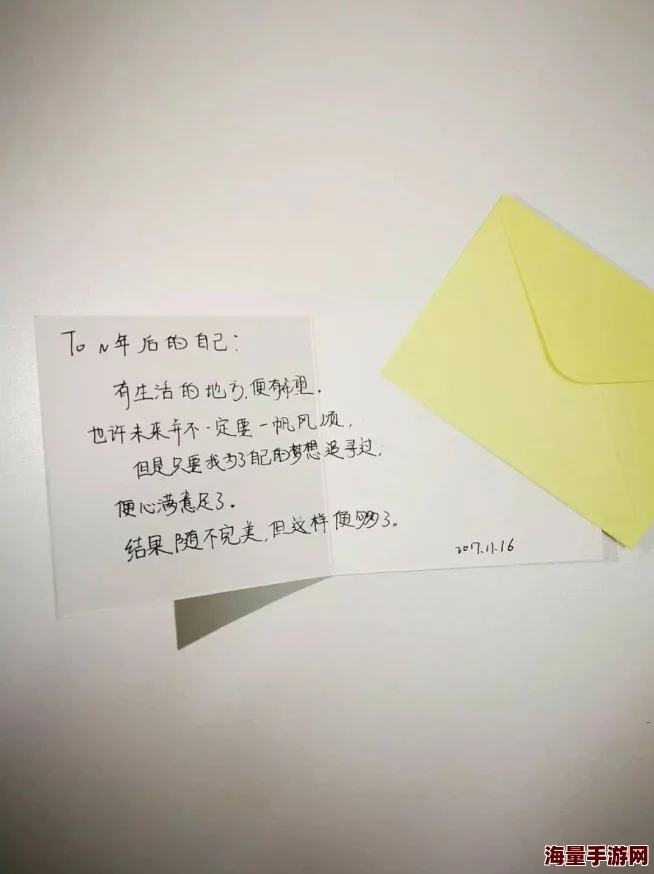 To N年后的自己：
有生活的地方,便有希望.
也许未来并不一定要一帆风顺,
但是只要我为了自己的梦想追寻过,
便心满意足了.
结果随不完美,但这样便够了。
2017.11.16
海量手游网